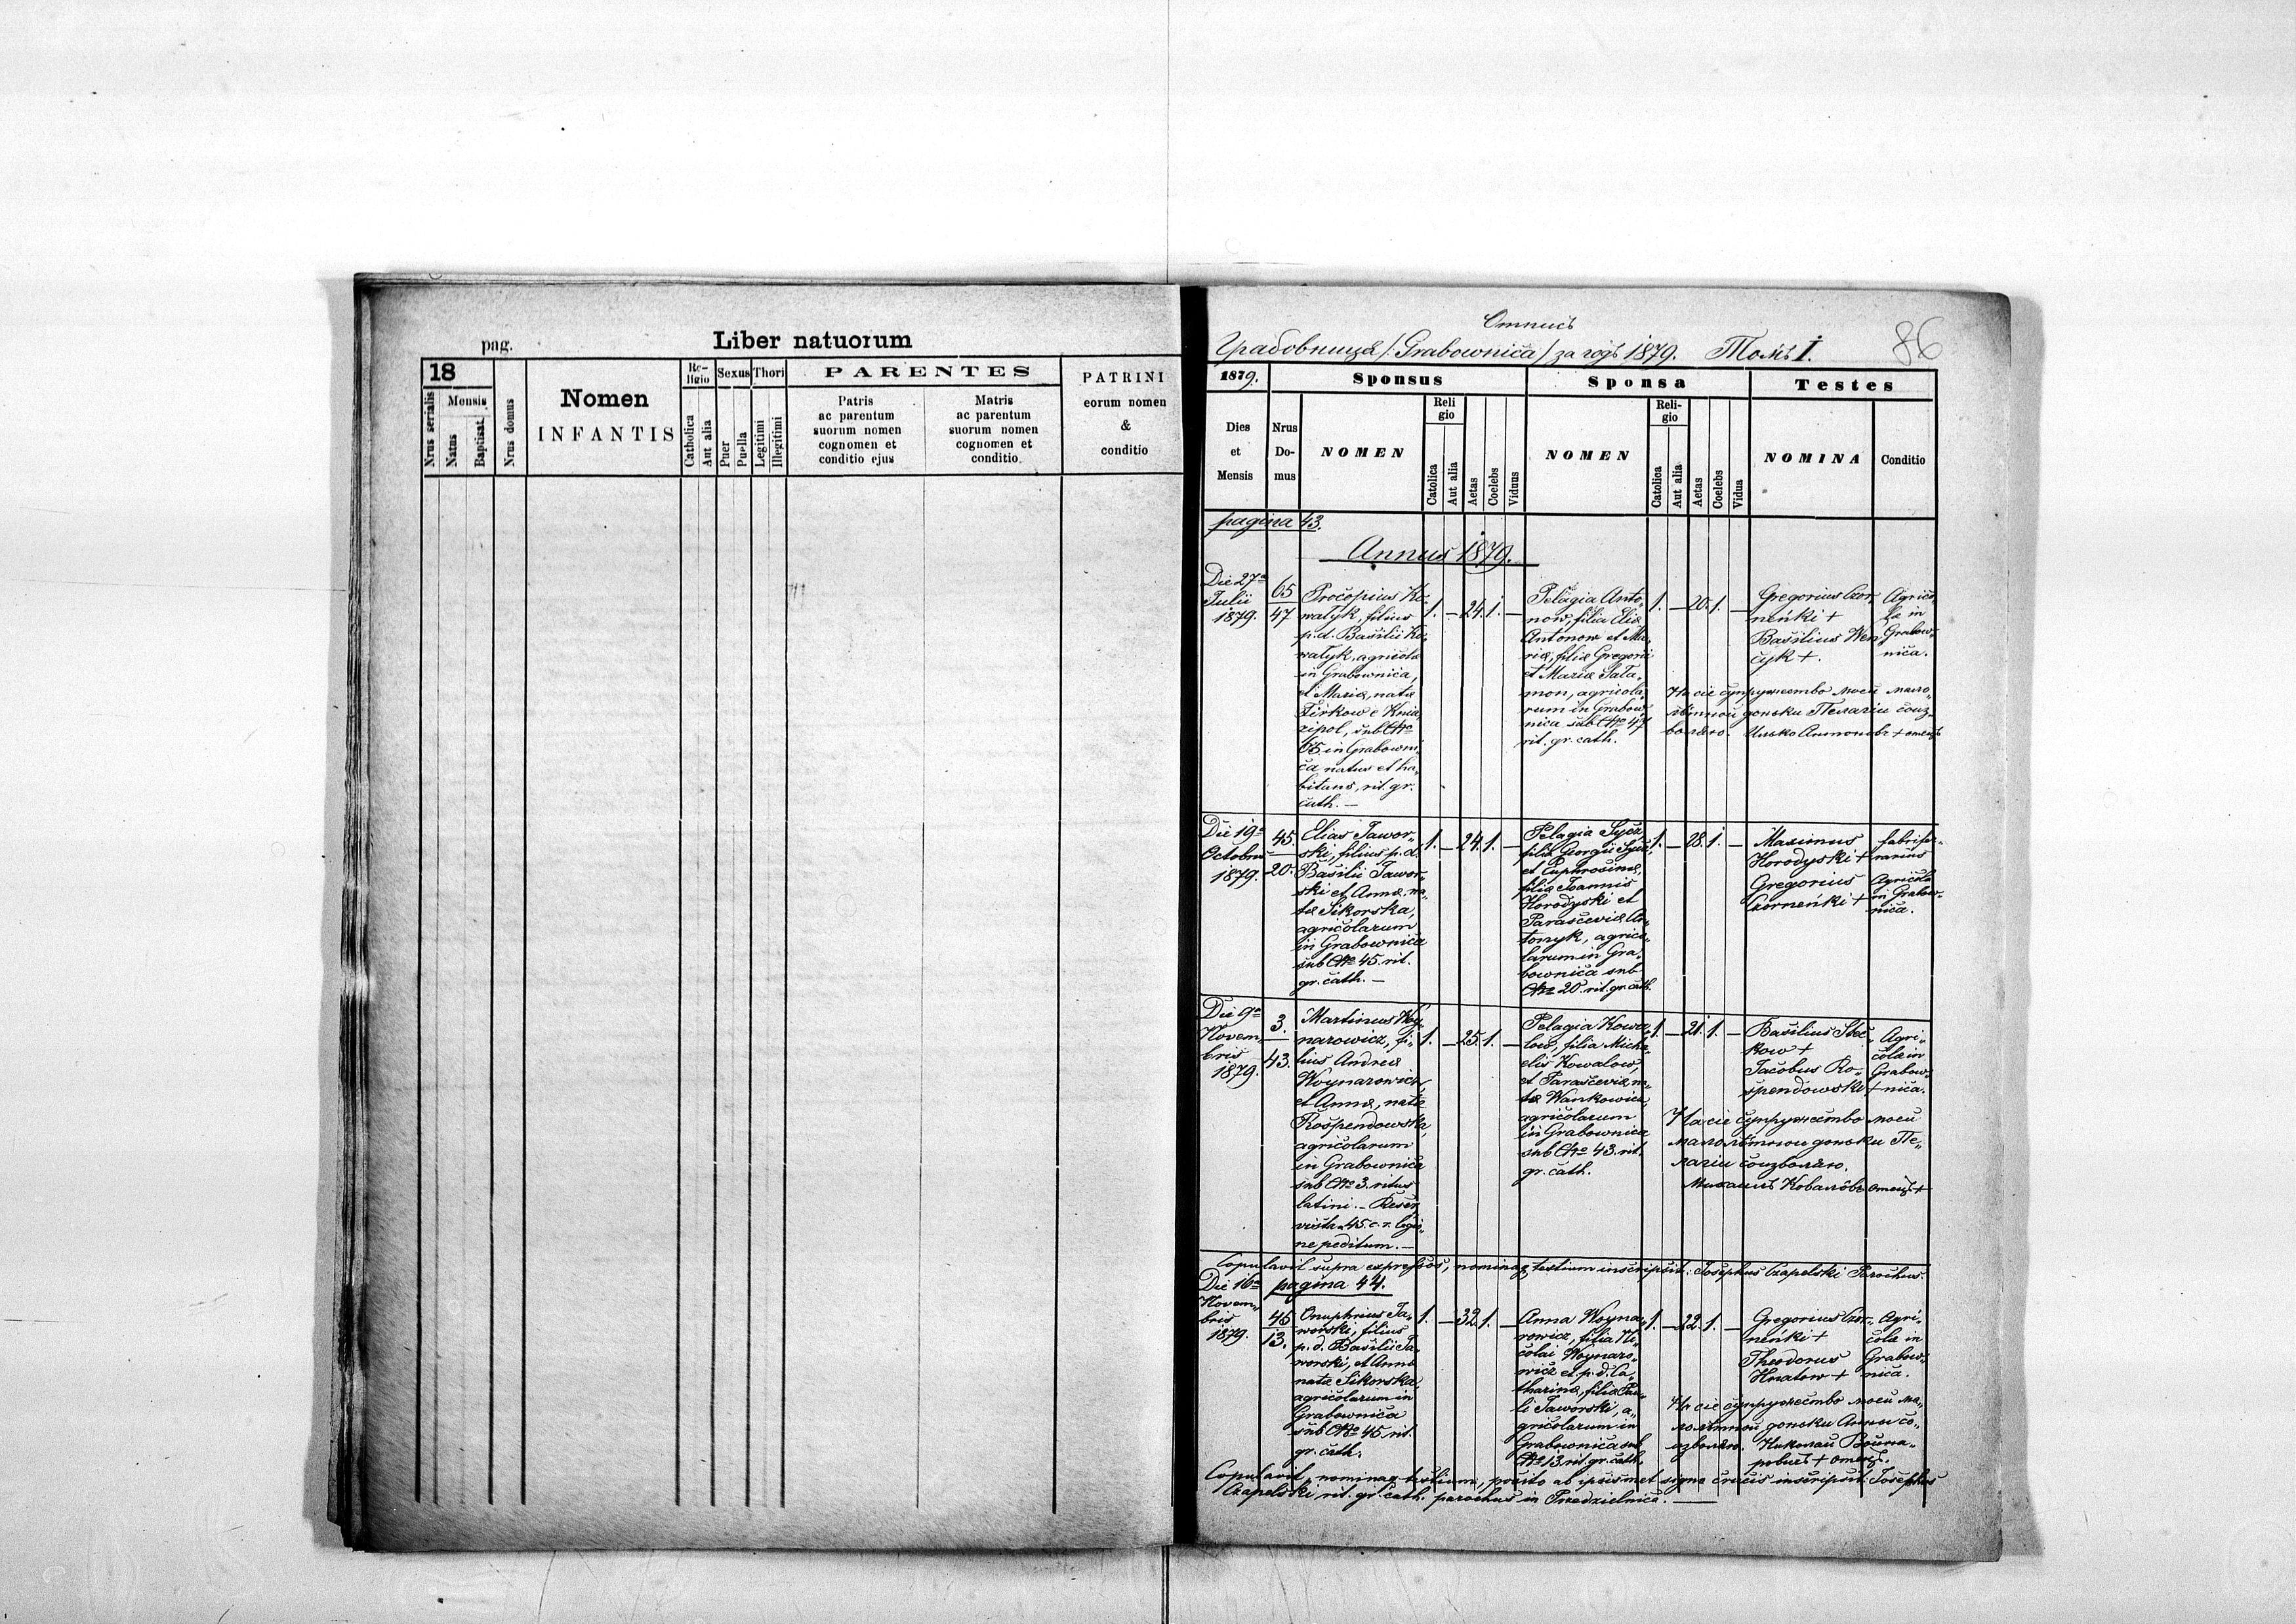 pag.
Liber natuorum
18
Mensis
Nrus serialis
Natus
Baptisat.
Nrus domus
Nomen
INFANTIS
Re-
ligio
Catholica
Aut alia
Sexus
Puer
Puella
Thori
Legitimi
Illegitimi
PARENTES
Patris
ac parentum
suorum nomen
cognomen et
conditio ejus
Matris
ac parentum
suorum nomen
cognomen et
conditio
PATRINI
eorum nomen
&
conditio
Отписъ
Грабовница /Grabownica/ за годъ 1879. Томъ I.
86
1879.
Sponsus
Sponsa
Testes
Dies
et
Mensis
Nrus
Do-
mus
NOMEN
Reli
gio
Catolica
Aut alia
Aetas
Coelebs
Viduus
NOMEN
Reli-
gio
Catolica
Aut alia
Aetas
Coelebs
Vidua
NOMINA
Conditio
pagina 43.
Annus 1879.
Die 27a
Julii
1879.
65
47
Procopius Ko„
watyk, filius
p. d. Basilii Ko„
watyk, agricola
in Grabownica,
et Mariæ, natæ
Firkow e Knia„
zipol, sub No
65 in Grabowni„
ca natus et ha„
bitans, rit. gr.
cath. —
1. — 24. 1. —
Pelagia Anto„
now, filia Eliæ
Antonow et Ma„
riæ, filiæ Gregorii
et Mariæ Pala„
mon, agricola„
rum in Grabow„
nica sub No 47
rit. gr. cath.
1. — 20. 1. —
Gregorius Czor„
neńki +
Basilius Wen„
cyk +.
Agrico„
læ in
Grabow„
nica.
На сіе супружество моей мало„
лѣтной доньки Пелагіи соиз„
воляю. Илько Антоновъ + отецъ
Die 19a
Octobris
1879.
45.
20.
Elias Jawor„
ski, filius p. d.
Basilii Jawor„
ski et Annæ, na„
tæ Sikorska,
agricolarum
in Grabownica
sub No 45. rit.
gr. cath. —
1. — 24. 1. —
Pelagia Sycz,
filia Georgii Sycz,
et Euphrosinæ,
filiæ Joannis
Horodyski et
Parasceviæ An„
tonyk, agrico„
larum in Gra„
bownica sub
No 20. rit. gr. cath.
1. — 28. 1. —
Maximus
Horodyski +
Gregorius
Czorneńki +
fabrifer„
rarius
Agricola
in Grabow„
nica.
Die 9a
Novem„
bris
1879.
3.
43.
Martinus Woy„
narowicz, fi„
lius Andreæ
Woynarowicz,
et Annæ, natæ
Rospendowska,
agricolarum
in Grabownica
sub No 3. ritus
latini. — Reser„
vista 45. c. r. legio„
ne peditum. —
1. — 25. 1. —
Pelagia Kowa„
low, filia Micha„
elis Kowalow,
et Parasceviæ, na„
tæ Wankowicz,
agricolarum
in Grabownica
sub No 43. rit.
gr. cath.
1. — 21. 1. —
Basilius Stec„
kow +
Jacobus Ro„
spendowski +
Agri„
colæ in
Grabow„
nica.
На сіе супружество моей
малолѣтной доньки Пе„
лагіи соизволяю.
Михаилъ Коваловъ отецъ +
Copulavit supra expressos, nominaq testium inscripsit: Josephus Czapelski Parochus.
pagina 44.
Die 16a
Novem„
bris
1879.
45
13.
Onuphrius Ja„
worski, filius
p. d. Basilii Ja„
worski, et Annæ
natæ Sikorska,
agricolarum in
Grabownica
sub No 45 rit.
gr. cath.
1. — 32. 1. —
Anna Woyna„
rowicz, filia Ni„
colai Woynaro„
wicz et p. d. Ca„
tharinæ, filiæ Pau„
li Jaworski, a„
gricolarum in
Grabownica sub
No 13. rit. gr. cath.
1. — 22. 1. —
Gregorius Czor„
neńki +
Theodorus
Hnatow +
Agri„
colæ in
Grabow„
nica.
На сіе супружество моей ма„
лолѣтной доньки Анны со„
изволяю. Николай Война„
ровичъ + отецъ.
Copulavit, nominaq testium, posito ab ipsismet signo crucis inscripsit: Josephus
Czapelski rit. gr. cath. parochus in Przedzielnica. —